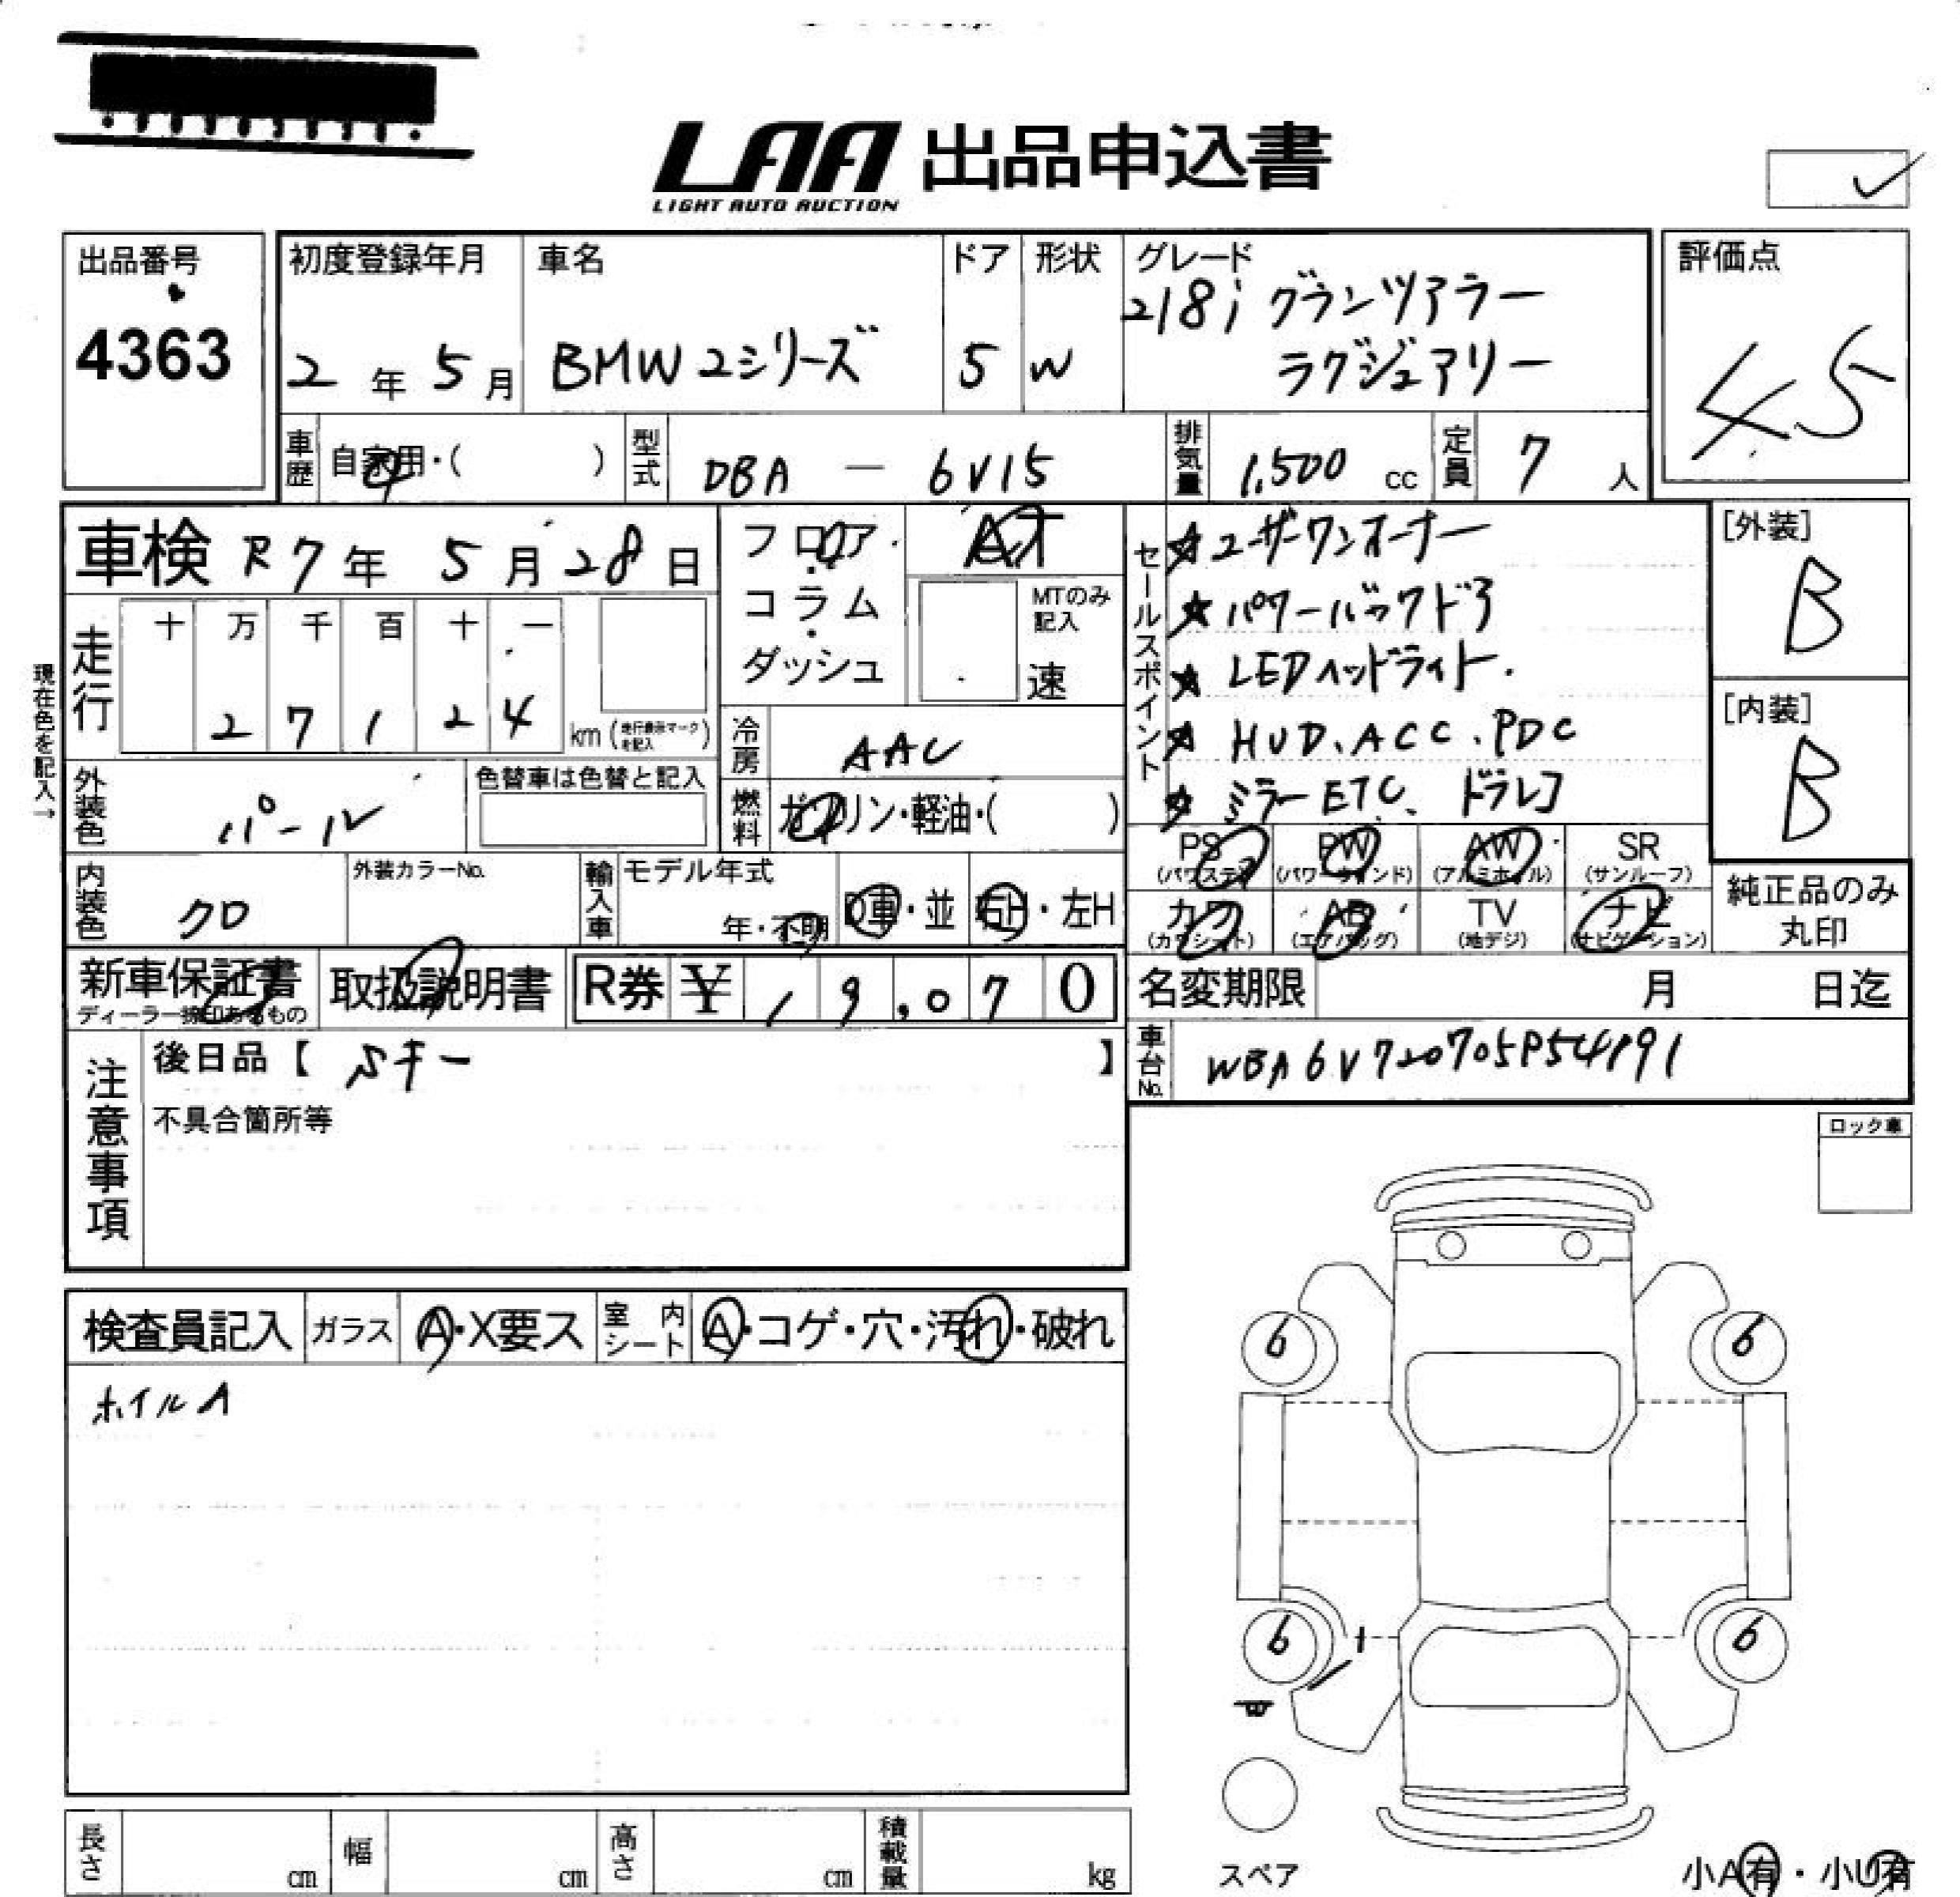 LAA 出品申込書
LIGHT AUTO AUCTION
出品番号
4363
初度登録年月
2年 5月
車名
BMW 2シリーズ
ドア
5
形状
W
グレード
218i グランツアラー
ラグジュアリー
評価点
4.5
車歴
自家用・( )
型式
DBA - 6V15
排気量
1,500 cc
定員
7 人
車検 R7年 5月 28日
フロア・
コラム・
ダッシュ
AT
MTのみ
記入
速
セールスポイント
★ユーザーワンオーナー
★パワーバックドア
★LEDヘッドライト.
★HUD、ACC、PDC
★ミラーETC、ドラレコ
[外装]
B
[内装]
B
現在色を記入→
走行
十 万 千 百 十 一
2 7 1 2 4
km (走行表示マークを記入)
冷房
AAC
外装色
パール
色替車は色替と記入
燃料
ガソリン・軽油・( )
PS
(パワステ)
PW
(パワーウインド)
AW
(アルミホイル)
SR
(サンルーフ)
カワ
(カワシート)
AB
(エアバッグ)
TV
(地デジ)
ナビ
(ナビゲーション)
純正品のみ
丸印
内装色
クロ
外装カラーNo.
輸入車
モデル年式
年・不明
D車・並
右H・左H
新車保証書
ディーラー捺印あるもの
取扱説明書
R券 ¥ 19,070
名変期限 月 日迄
車台No.
WBA6V720705P54191
注意事項
後日品【 Sキー 】
不具合箇所等
ロック車
検査員記入
ガラス
A・X要ス
室内シート
A・コゲ・穴・汚れ・破れ
ホイルA
6
6
6
6
スペア
小A有・小U有
長さ cm
幅 cm
高さ cm
積載量 kg